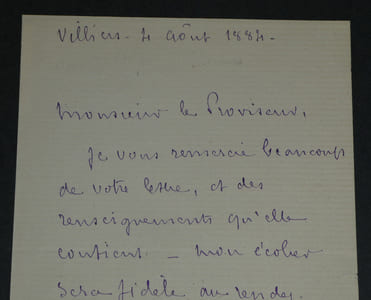 Villiers - 4 Août 1884 -
Monsieur le Proviseur,
Je vous remercie beaucoup
de votre lettre, et des
renseignements qu'elle
contient. _ mon écolier
sera fidèle au rendez.